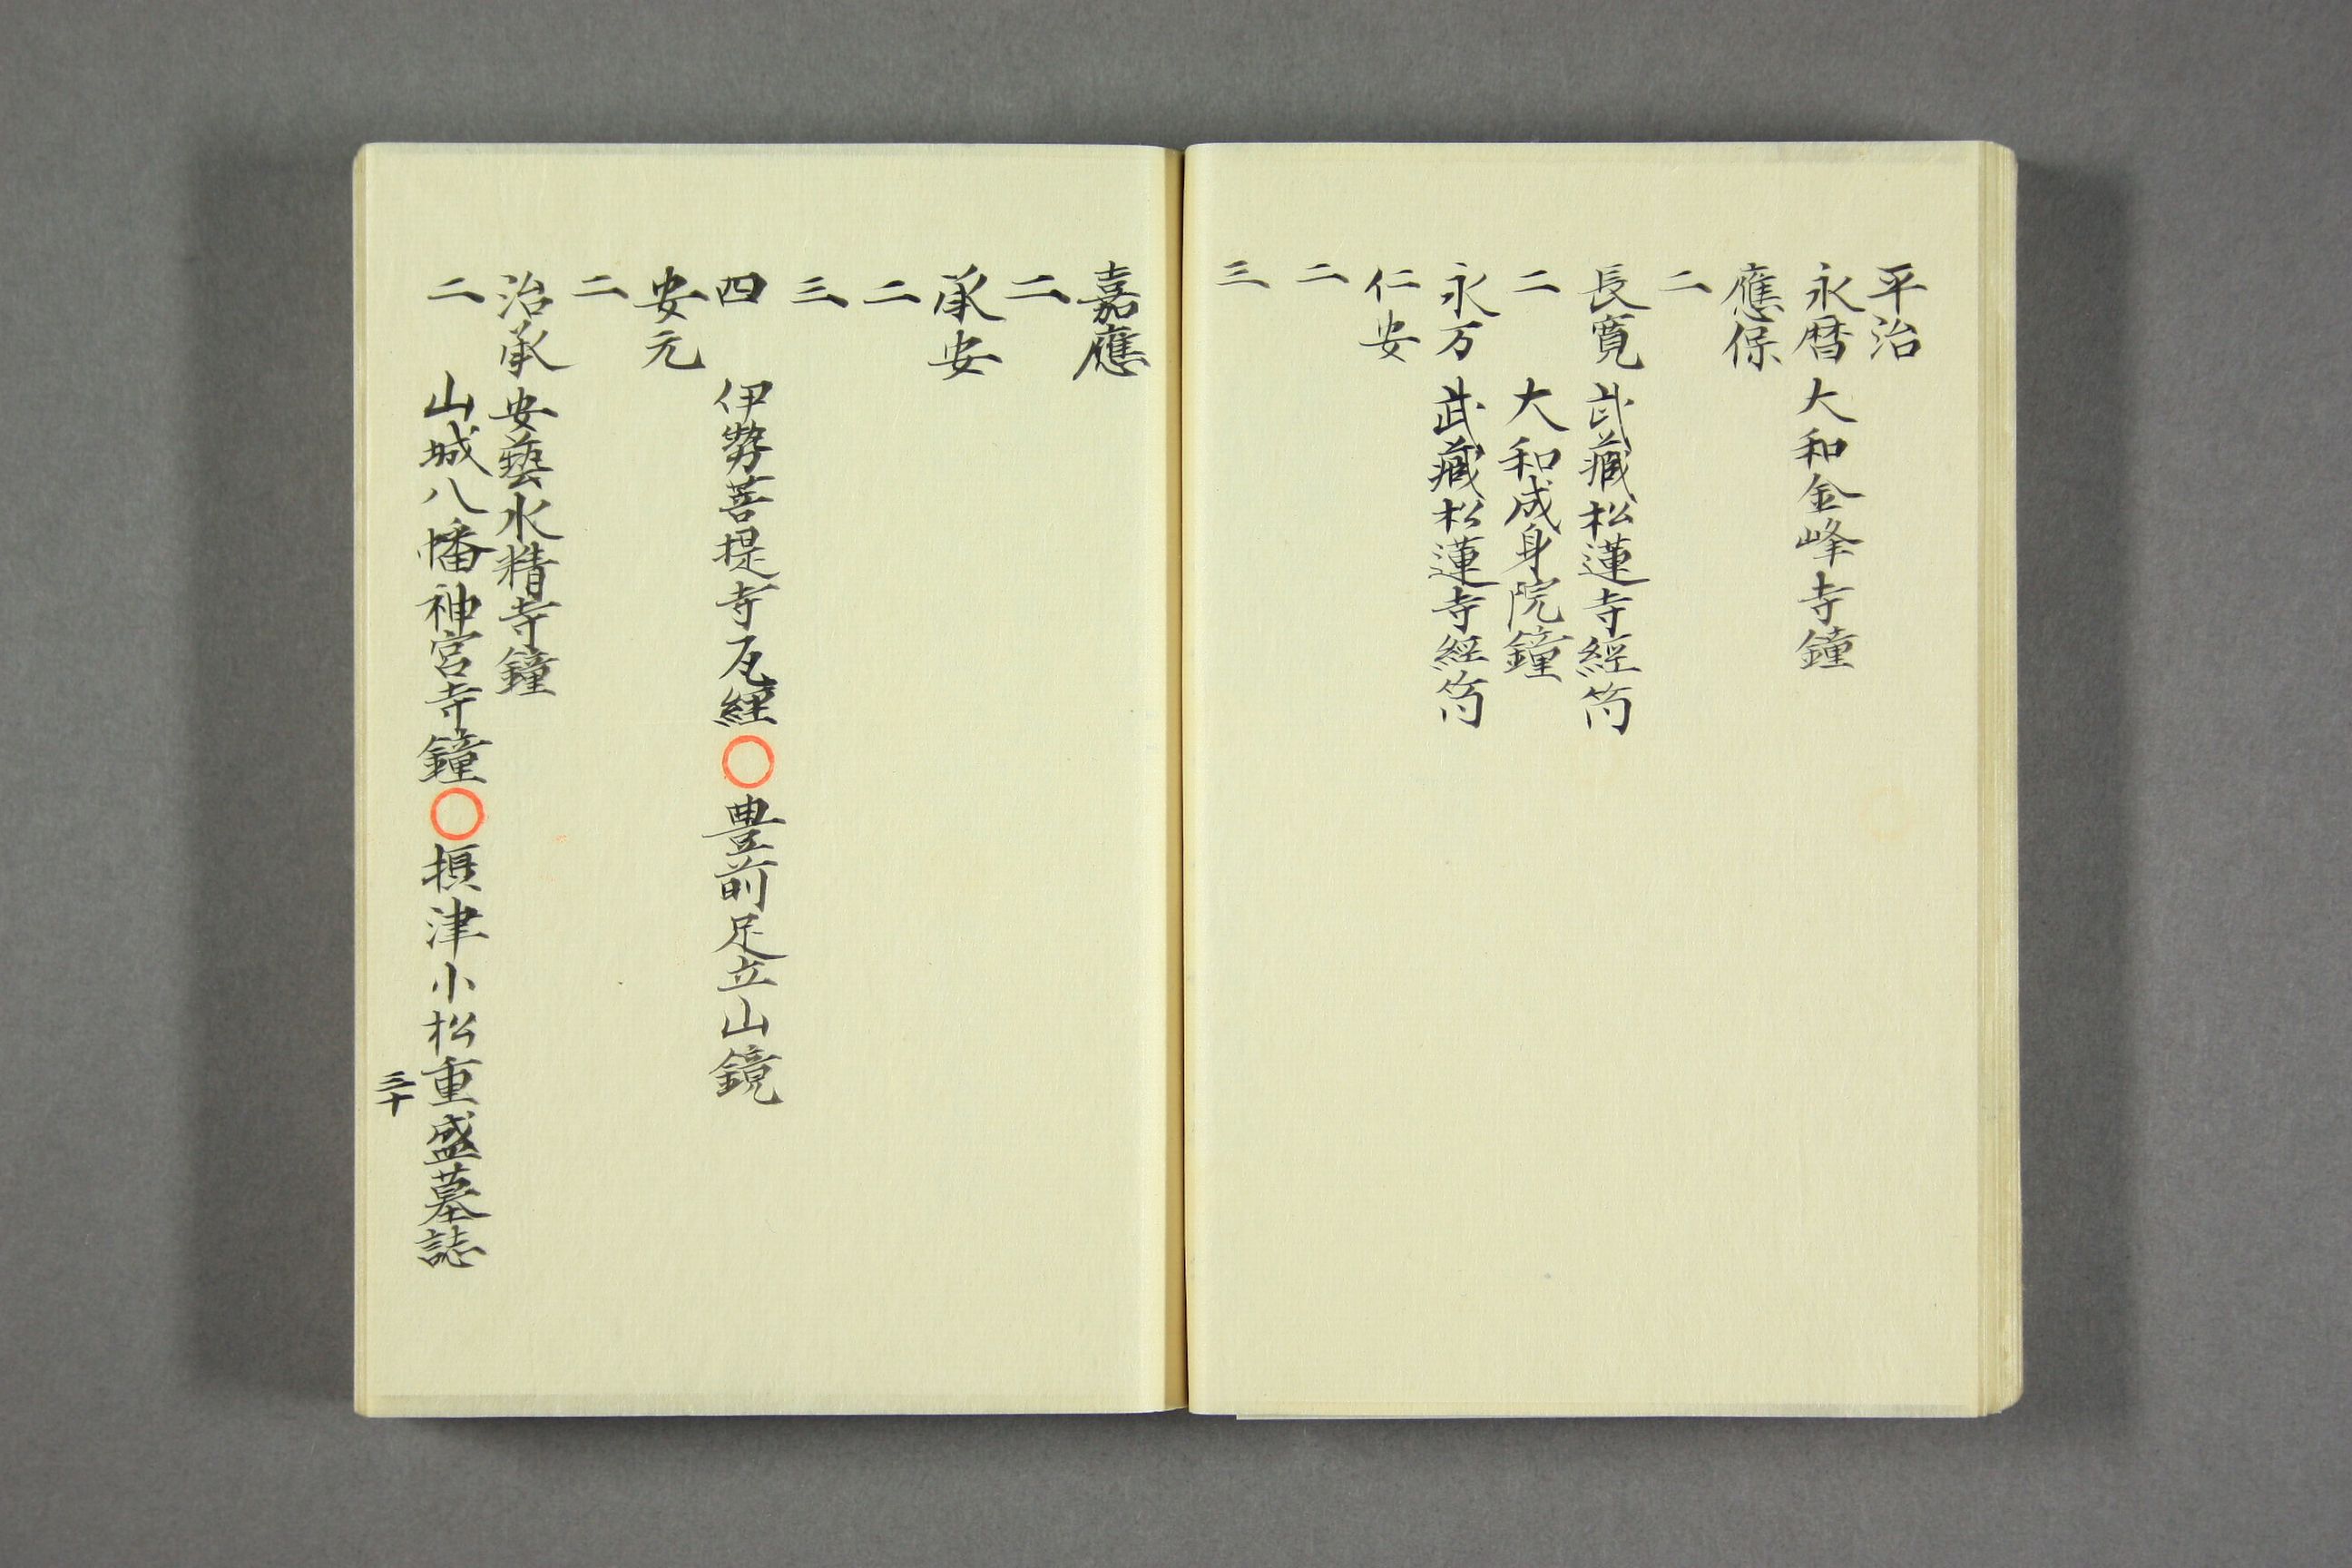 平治
永暦 大和金峰寺鐘
應保
二
長寛 武藏松蓮寺經筒
二 大和成身院鐘
永万 武藏松蓮寺經筒
仁安
二
三
嘉應
二
承安
二
三
四 伊勢菩提寺瓦經○豊前足立山鏡
安元
二
治承 安藝水精寺鐘
二 山城八幡神宮寺鐘○摂津小松重盛墓誌
三十